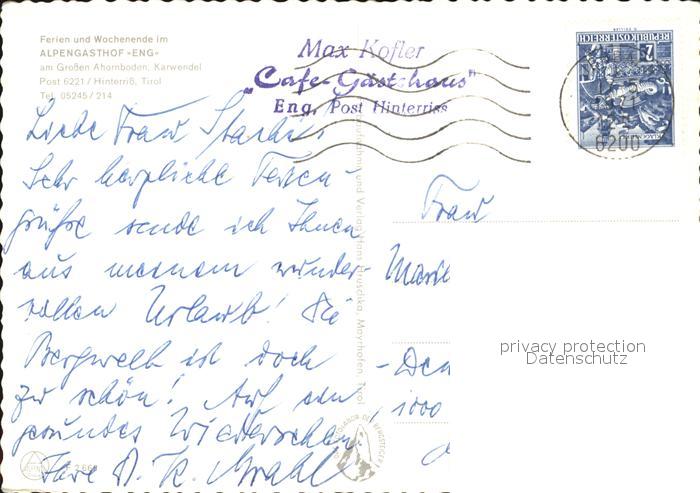 Ferien und Wochenende im
ALPENGASTHOF »ENG«
am Großen Ahornboden, Karwendel
Post 6221 / Hinterriß, Tirol
Tel. 05245 / 214
Max Kofler
„Cafe-Gästehaus"
Eng, Post Hinterriss
REPUBLIK ÖSTERREICH
2
6200
Liebe Frau
Sehr herzliche Ferien-
grüße sende ich Ihnen
aus meinem wunder-
vollen Urlaub! Die
Bergwelt ist doch
zu schön! Auf ein
gesundes Wiedersehen!
Ihre
Frau
1000
und Verlag Hans Hruschka, Mayrhofen, Tirol
privacy protection
Datenschutz